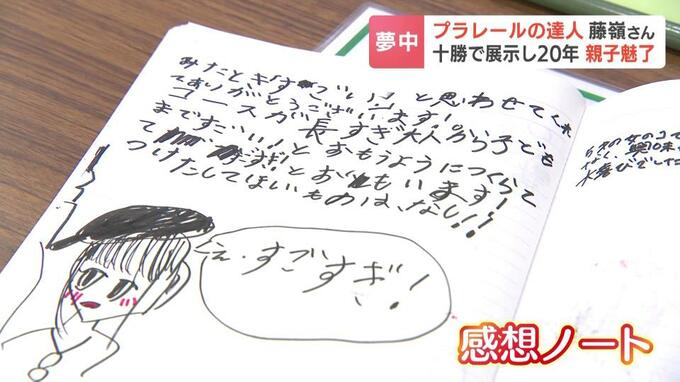 夢中
プラレールの達人 藤嶺さん
十勝で展示し20年 親子魅了
みたとき"すごいっ!"と思わせてくれ
てありがとうございます!
コースが長すぎ大人から子ども
まですごい!とおもうようにつくって
とおもいます!
つけたしてほしいものは、なし!!
え、すごすぎ!
6さいの女の子で
大喜びでした
感想ノート